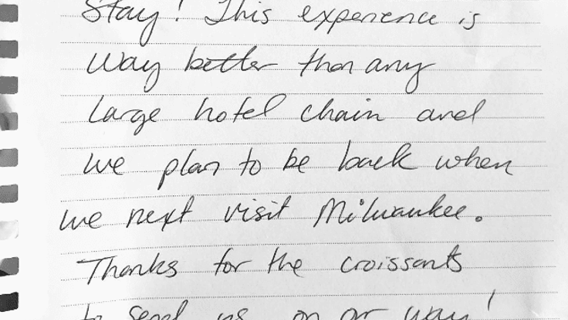 Stay! This experience is
way better than any
large hotel chain and
we plan to be back when
we next visit Milwaukee.
Thanks for the croissants
to send us on our way!